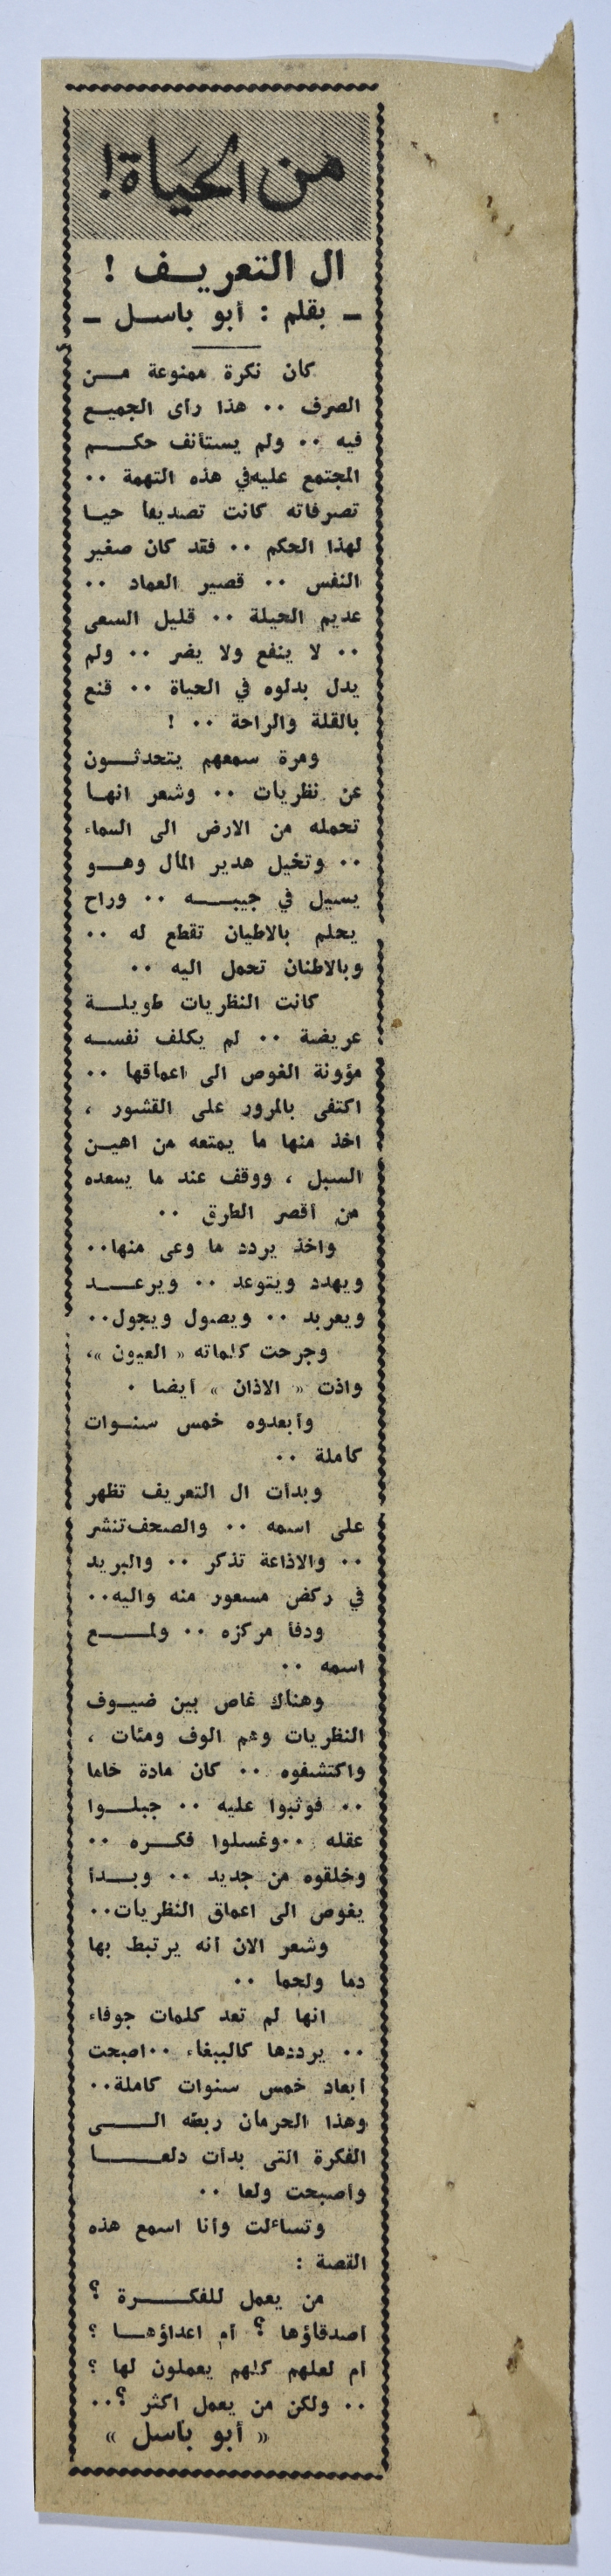 من الحياة!
ال التعريف !
ـ بقلم : أبو باسل ـ
كان نكرة ممنوعة من
الصرف .. هذا رأى الجميع
فيه .. ولم يستأنف حكم
المجتمع عليه في هذه التهمة ..
تصرفاته كانت تصديقا حيا
لهذا الحكم .. فقد كان صغير
النفس .. قصير العماد ..
عديم الحيلة .. قليل السعى
.. لا ينفع ولا يضر .. ولم
يدل بدلوه في الحياة .. قنع
بالقلة والراحة .. !
ومرة سمعهم يتحدثون
عن نظريات .. وشعر انها
تحمله من الارض الى السماء
.. وتخيل هدير المال وهو
يسيل في جيبه .. وراح
يحلم بالاطيان تقطع له ..
وبالاطنان تحمل اليه ..
كانت النظريات طويلة
عريضة .. لم يكلف نفسه
مؤونة الغوص الى اعماقها ..
اكتفى بالمرور على القشور ،
اخذ منها ما يمتعه من اهين
السبل ، ووقف عند ما يسعده
من أقصر الطرق ..
واخذ يردد ما وعى منها..
ويهدد ويتوعد .. ويرعد
ويعربد .. ويصول ويجول..
وجرحت كلماته « العيون »،
واذت « الاذان » أيضا .
وأبعدوه خمس سنوات
كاملة ..
وبدأت ال التعريف تظهر
على اسمه .. والصحف تنشر
.. والاذاعة تذكر .. والبريد
في ركض مسعور منه واليه..
ودفأ مركزه .. ولمع
اسمه ..
وهناك غاص بين ضيوف
النظريات وهم الوف ومئات ،
واكتشفوه .. كان مادة خاما
.. فوثبوا عليه .. جبلوا
عقله .. وغسلوا فكره ..
وخلقوه من جديد .. وبدأ
يغوص الى اعماق النظريات..
وشعر الان أنه يرتبط بها
دما ولحما ..
انها لم تعد كلمات جوفاء
.. يرددها كالببغاء .. اصبحت
ابعاد خمس سنوات كاملة..
وهذا الحرمان ربطه الى
الفكرة التى بدأت دلعا
وأصبحت ولعا ..
وتساءلت وأنا اسمع هذه
القصة :
من يعمل للفكرة ؟
أصدقاؤها ؟ أم اعداؤها ؟
أم لعلهم كلهم يعملون لها ؟
.. ولكن من يعمل اكثر ؟..
« أبو باسل »